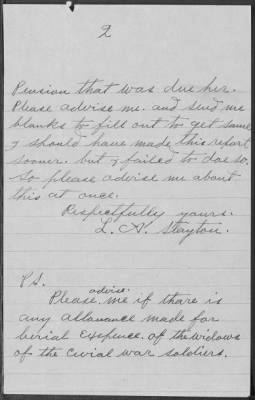 2
Pension that was due her.
Please advise me. and send me
blanks to fill out to get same
I should have made this report
sooner. but I failed to doe so.
so please advise me about
this at once.
Respectfully yours.
L. N. Stayton.
P.S.
advise.
Please me if thare is
any allowance made for
berial exepence. of the widows
of the Civial war soloiers.